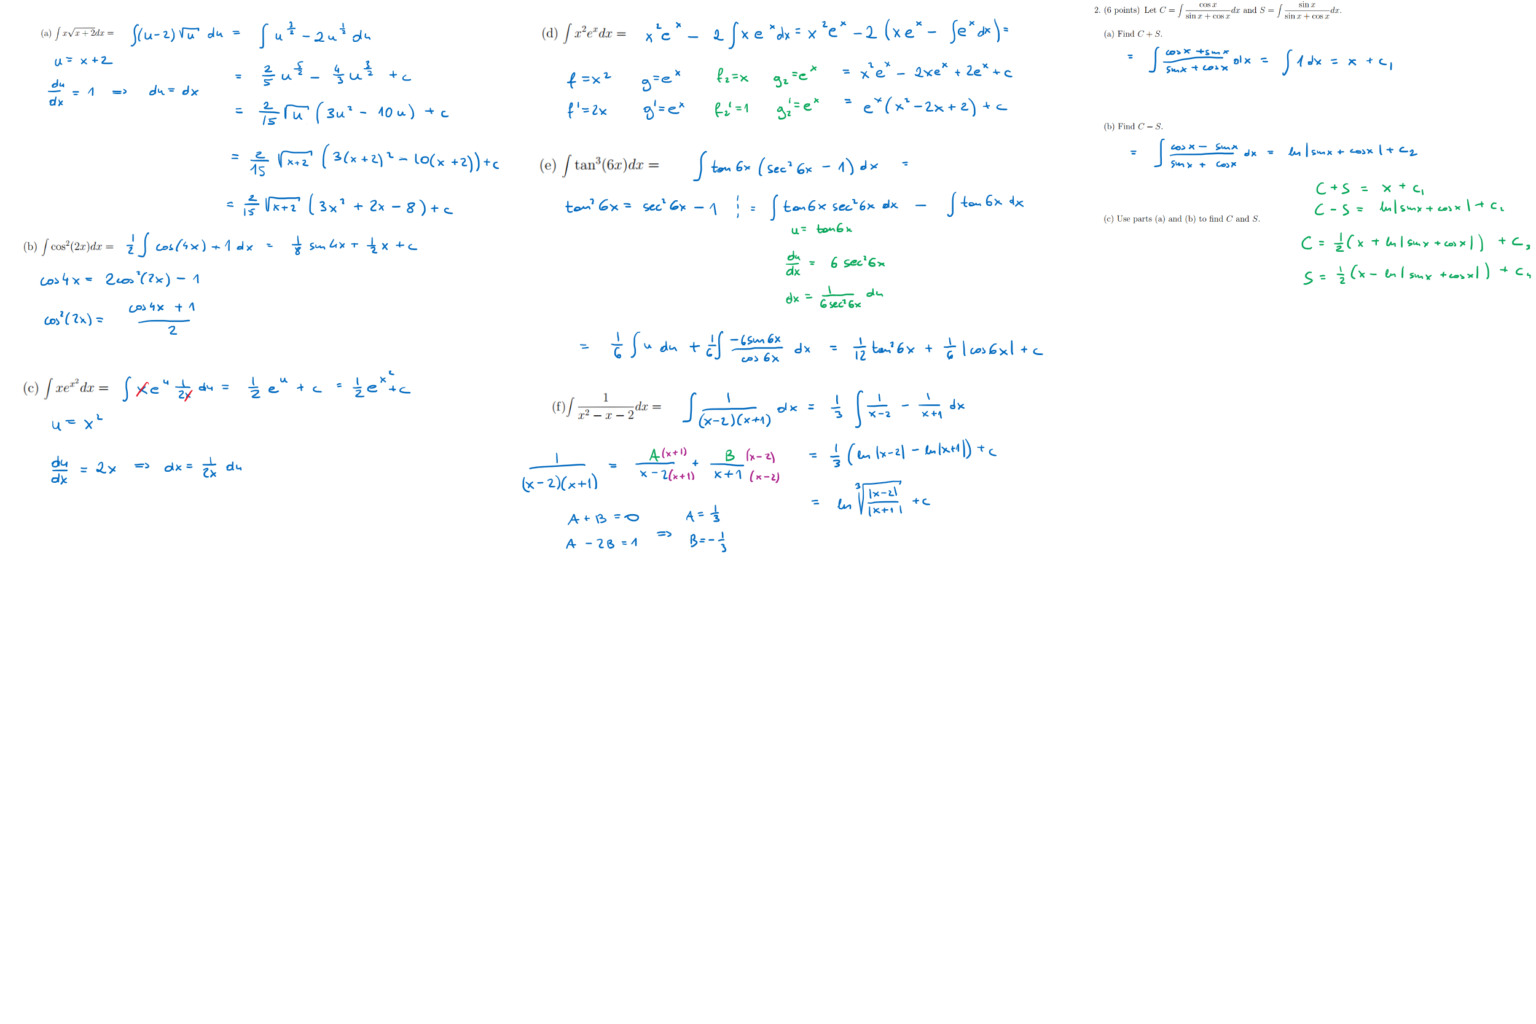 (a) ∫ x√(x + 2)dx = ∫(u-2)√u du = ∫ u^(3/2) - 2u^(1/2) du
u = x+2
= 2/5 u^(5/2) - 4/3 u^(3/2) + c
du/dx = 1 => du = dx
= 2/15 √u (3u² - 10u) + c
= 2/15 √(x+2) (3(x+2)² - 10(x+2)) + c
= 2/15 √(x+2) (3x² + 2x - 8) + c
(b) ∫ cos²(2x)dx = 1/2 ∫ cos(4x) + 1 dx = 1/8 sin 4x + 1/2 x + c
cos 4x = 2cos²(2x) - 1
cos²(2x) = (cos 4x + 1)/2
(c) ∫ xe^(x²) dx = ∫ x e^u 1/(2x) du = 1/2 e^u + c = 1/2 e^(x²) + c
u = x²
du/dx = 2x => dx = 1/(2x) du
(d) ∫ x²e^x dx = x²e^x - 2 ∫ x e^x dx = x²e^x - 2 (xe^x - ∫e^x dx) =
f = x² g = e^x f₂ = x g₂ = e^x = x²e^x - 2xe^x + 2e^x + c
f' = 2x g' = e^x f₂' = 1 g₂' = e^x = e^x (x² - 2x + 2) + c
(e) ∫ tan³(6x)dx = ∫ tan 6x (sec² 6x - 1) dx =
tan² 6x = sec² 6x - 1 = ∫ tan 6x sec² 6x dx - ∫ tan 6x dx
u = tan 6x
du/dx = 6 sec² 6x
dx = 1/(6 sec² 6x) du
= 1/6 ∫ u du + 1/6 ∫ (-6 sin 6x)/(cos 6x) dx = 1/12 tan² 6x + 1/6 |cos 6x| + c
(f) ∫ 1/(x² - x - 2) dx = ∫ 1/((x-2)(x+1)) dx = 1/3 ∫ 1/(x-2) - 1/(x+1) dx
1/((x-2)(x+1)) = A(x+1)/(x-2(x+1)) + B(x-2)/(x+1 (x-2)) = 1/3 (ln |x-2| - ln |x+1|) + c
= ln ³√(|x-2|/|x+1|) + c
A + B = 0 A = 1/3
A - 2B = 1 => B = -1/3
2. (6 points) Let C = ∫ cos x/(sin x + cos x) dx and S = ∫ sin x/(sin x + cos x) dx.
(a) Find C + S.
= ∫ (cos x + sin x)/(sin x + cos x) dx = ∫ 1 dx = x + c₁
(b) Find C − S.
= ∫ (cos x - sin x)/(sin x + cos x) dx = ln |sin x + cos x| + c₂
C + S = x + c₁
C - S = ln |sin x + cos x| + c₂
(c) Use parts (a) and (b) to find C and S.
C = 1/2 (x + ln |sin x + cos x|) + c₃
S = 1/2 (x - ln |sin x + cos x|) + c₄